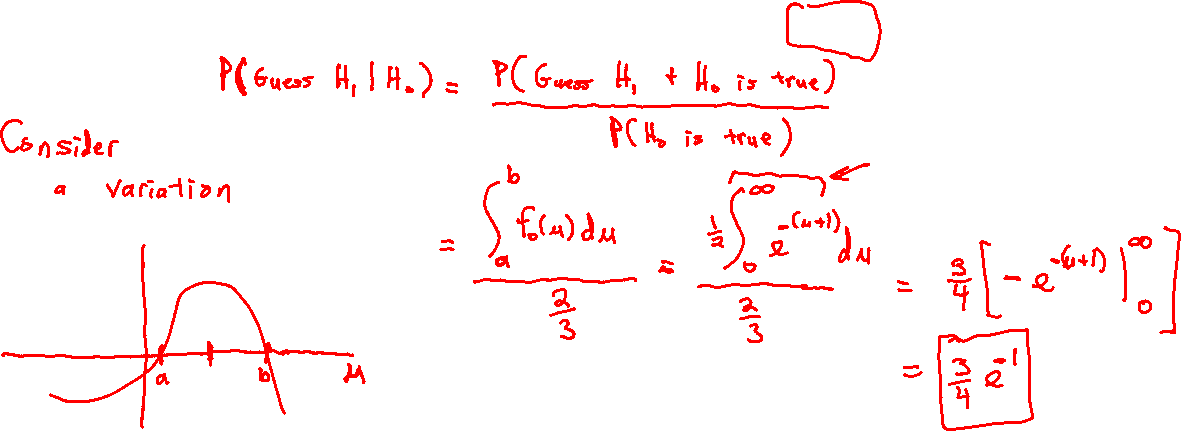 P(Guess H₁ | H₀) = P(Guess H₁ + H₀ is true) / P(H₀ is true)
Consider
a variation
= ∫ₐᵇ f₀(u) du / (2/3) = ½ ∫₀^∞ e^-(u+1) du / (2/3) = 3/4 [ - e^-(u+1) |₀^∞ ]
= 3/4 e^-1
a b u